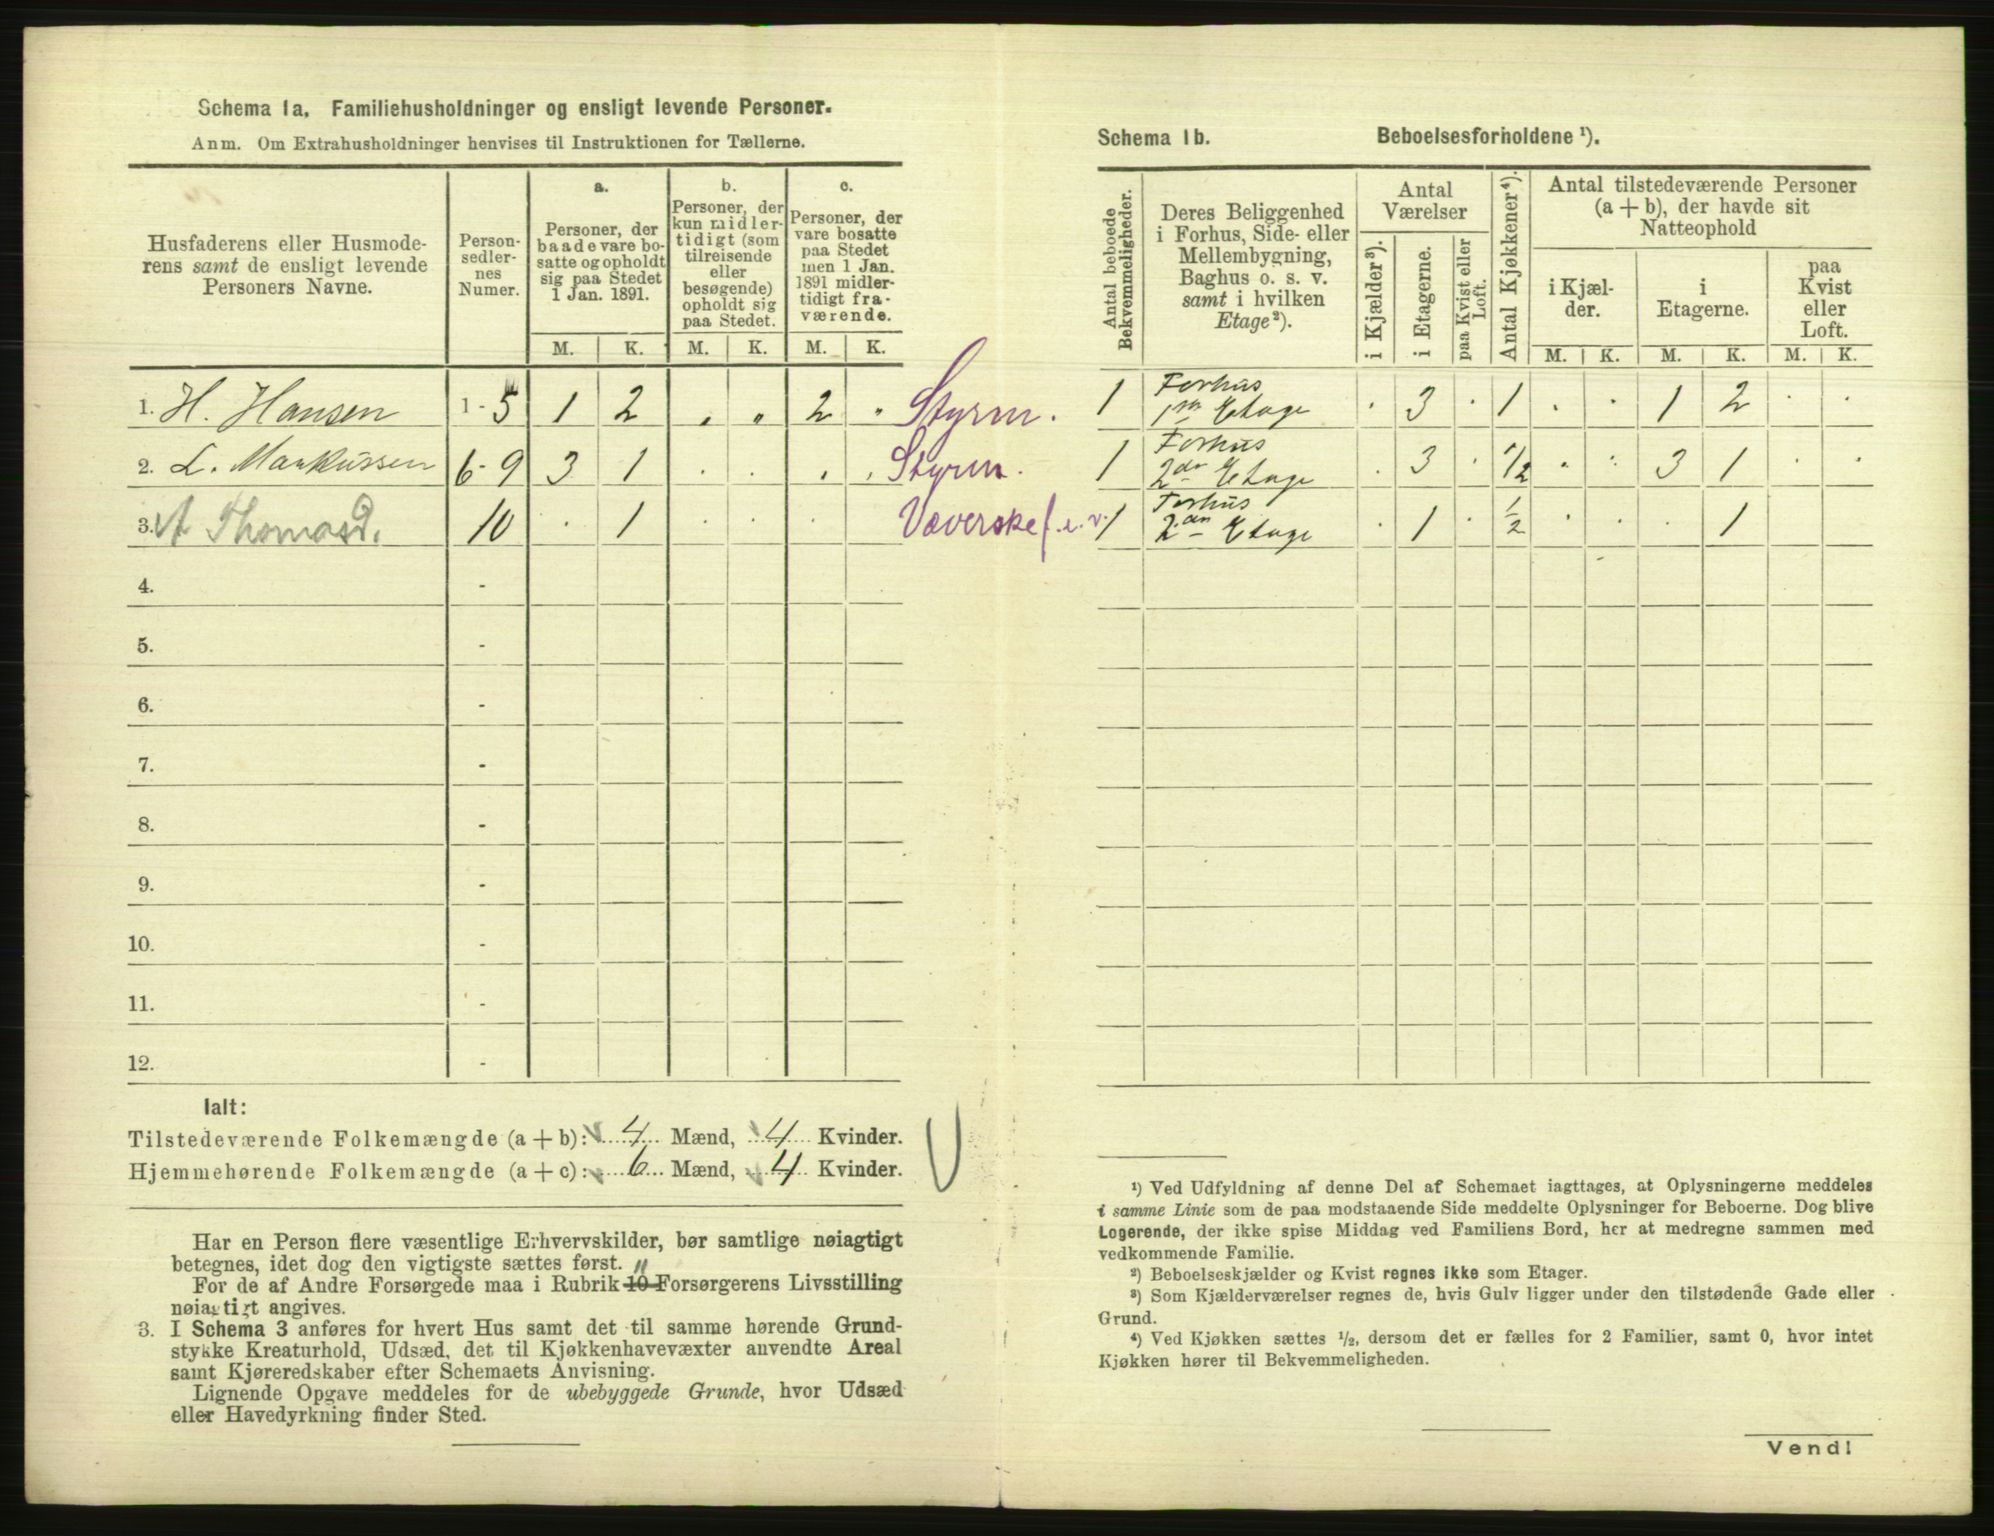 Schema 1a. Familiehusholdninger og ensligt levende Personer.
Anm. Om Extrahusholdninger henvises til Instruktionen for Tællerne.
Husfaderens eller Husmoderens samt de ensligt levende Personers Navne.
Personsedlernes Numer.
a.
Personer, der baade vare bosatte og opholdt sig paa Stedet 1 Jan. 1891.
b.
Personer, der kun midlertidigt (som tilreisende eller besøgende) opholdt sig paa Stedet.
c.
Personer, der vare bosatte paa Stedet men 1 Jan. 1891 midlertidigt fraværende.
M. K. M. K. M. K.
1. H. Hansen 1-5 1 2 . „ 2 „ Styrm.
2. L. Markussen 6-9 3 1 . . . . Styrm.
3. A Thomasd. 10 . 1 . . . Væverske f.e.v.
4. -
5. -
6. -
7. -
8. -
9. -
10. -
11. -
12. -
Ialt:
Tilstedeværende Folkemængde (a + b): 4 Mænd, 4 Kvinder.
Hjemmehørende Folkemængde (a + c): 6 Mænd, 4 Kvinder.
Har en Person flere væsentlige Erhvervskilder, bør samtlige nøiagtigt
betegnes, idet dog den vigtigste sættes først. 11
For de af Andre Forsørgede maa i Rubrik 10 Forsørgerens Livsstilling
nøiagtigt angives.
3. I Schema 3 anføres for hvert Hus samt det til samme hørende Grund-
stykke Kreaturhold, Udsæd, det til Kjøkkenhavevæxter anvendte Areal
samt Kjøreredskaber efter Schemaets Anvisning.
Lignende Opgave meddeles for de ubebyggede Grunde, hvor Udsæd
eller Havedyrkning finder Sted.
Schema 1b. Beboelsesforholdene ¹).
Antal beboede Bekvemmeligheder.
Deres Beliggenhed i Forhus, Side- eller Mellembygning, Baghus o. s. v. samt i hvilken Etage²).
Antal Værelser
i Kjælder³).
i Etagerne.
paa Kvist eller Loft.
Antal Kjøkkener⁴).
Antal tilstedeværende Personer (a + b), der havde sit Natteophold
i Kjælder.
i Etagerne.
paa Kvist eller Loft.
M. K. M. K. M. K.
1 Forhus 1ste Etage . 3 . 1 . . 1 2 . .
1 Forhus 2den Etage . 3 . 1/2 . . 3 1 . .
1 Forhus 2den Etage . 1 . 1/2 . . . 1
¹) Ved Udfyldning af denne Del af Schemaet iagttages, at Oplysningerne meddeles
i samme Linie som de paa modstaaende Side meddelte Oplysninger for Beboerne. Dog blive
Logerende, der ikke spise Middag ved Familiens Bord, her at medregne sammen med
vedkommende Familie.
²) Beboelseskjælder og Kvist regnes ikke som Etager.
³) Som Kjælderværelser regnes de, hvis Gulv ligger under den tilstødende Gade eller
Grund.
⁴) Ved Kjøkken sættes ½, dersom det er fælles for 2 Familier, samt 0, hvor intet
Kjøkken hører til Bekvemmeligheden.
Vend!